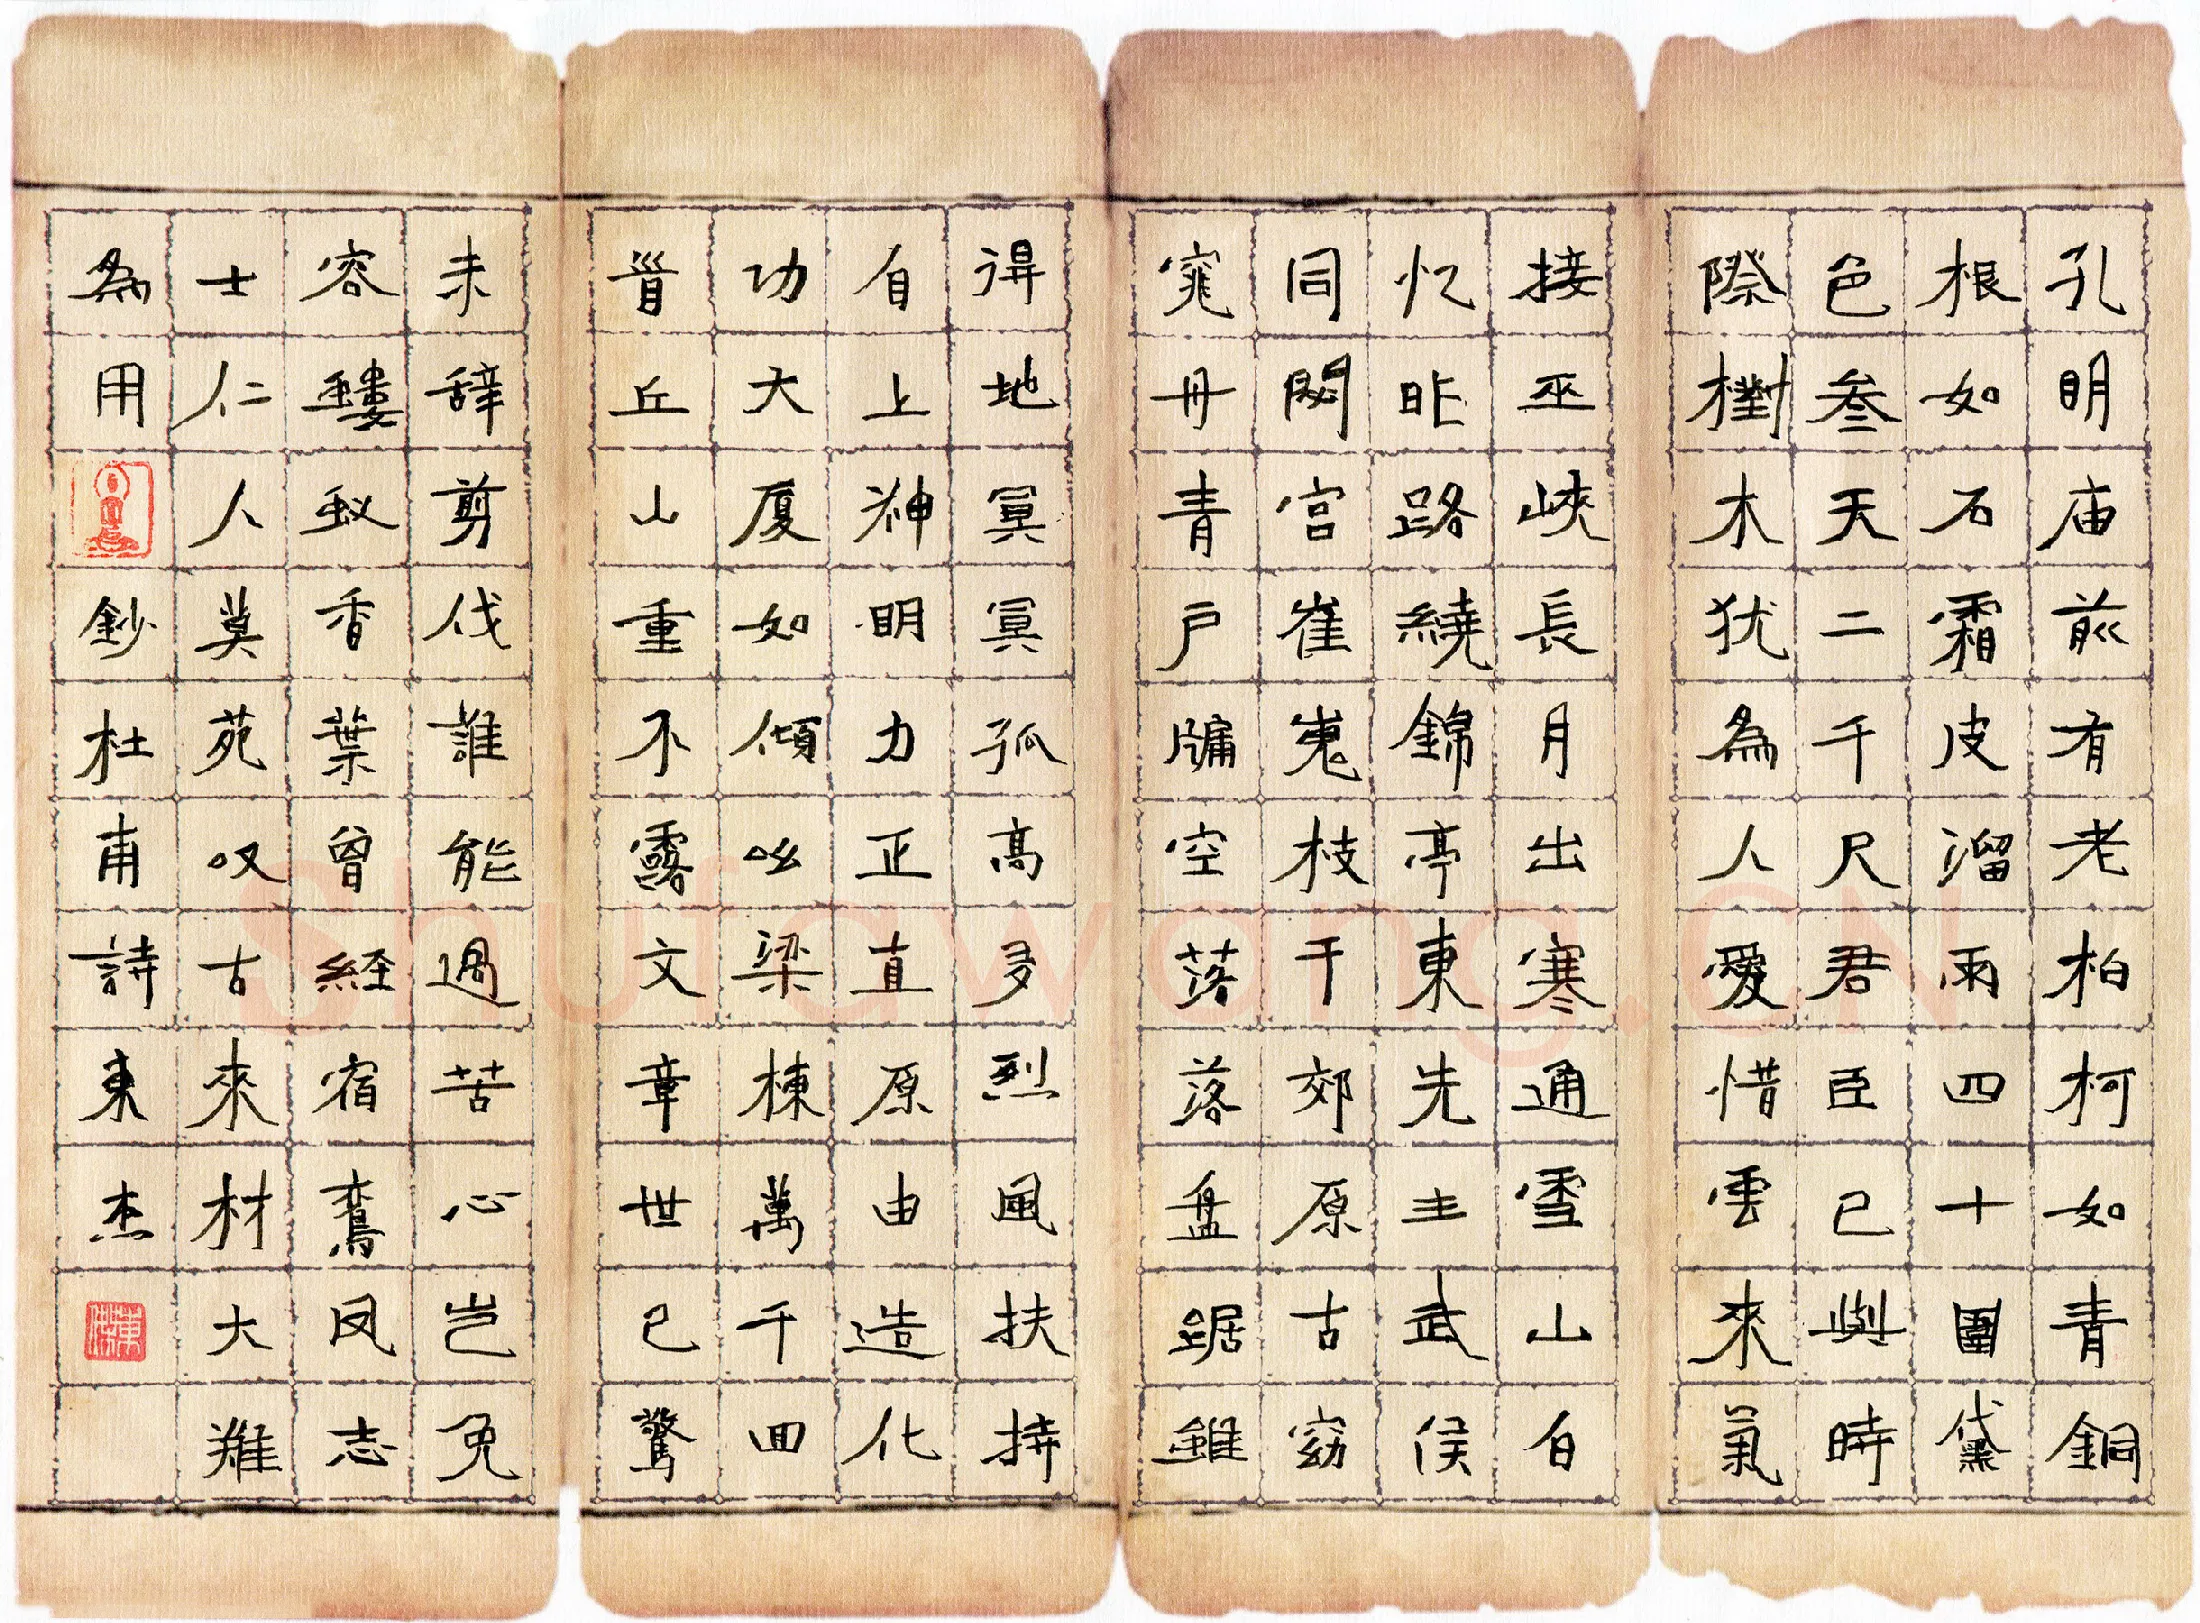 孔明庙前有老柏柯如青銅
根如石霜皮溜雨四十圍黛
色叁天二千尺君臣已與時
際樹木犹為人愛惜雲來氣
接巫峽長月出寒通雪山白
忆昨路繞錦亭東先主武侯
同閟宫崔嵬枝干郊原古窈
窕丹青戶牖空落落盘踞雖
得地冥冥孤高多烈風扶持
自上神明力正直原由造化
功大厦如傾吆梁棟萬千囬
首丘山重不露文章世已驚
未辞剪伐誰能過苦心岂免
容螻蚁香葉曾経宿鸞凤志
士仁人莫苑叹古來材大難
為用 鈔杜甫詩東杰
東傑
Shufawang.CN